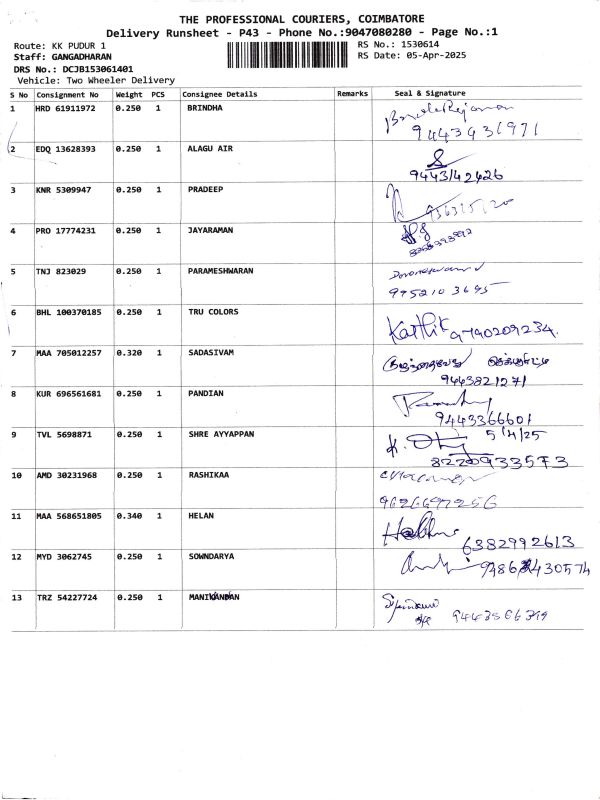 THE PROFESSIONAL COURIERS, COIMBATORE
Delivery Runsheet - P43 - Phone No.:9047080280 - Page No.:1
Route: KK PUDUR 1
RS No.: 1530614
Staff: GANGADHARAN
RS Date: 05-Apr-2025
DRS No.: DCJB153061401
Vehicle: Two Wheeler Delivery
S No Consignment No Weight PCS Consignee Details Remarks Seal & Signature
1 HRD 61911972 0.250 1 BRINDHA
9443431971
2 EDQ 13628393 0.250 1 ALAGU AIR
9443142426
3 KNR 5309947 0.250 1 PRADEEP
4 PRO 17774231 0.250 1 JAYARAMAN
5 TNJ 823029 0.250 1 PARAMESHWARAN
9952103695
6 BHL 100370185 0.250 1 TRU COLORS
Karthik 9790209234.
7 MAA 705012257 0.320 1 SADASIVAM
9443821271
8 KUR 696561681 0.250 1 PANDIAN
9443366601
9 TVL 5698871 0.250 1 SHRE AYYAPPAN
5/4/25
8220933573
10 AMD 30231968 0.250 1 RASHIKAA
11 MAA 568651805 0.340 1 HELAN
6382992613
12 MYD 3062745 0.250 1 SOWNDARYA
13 TRZ 54227724 0.250 1 MANIKANDAN